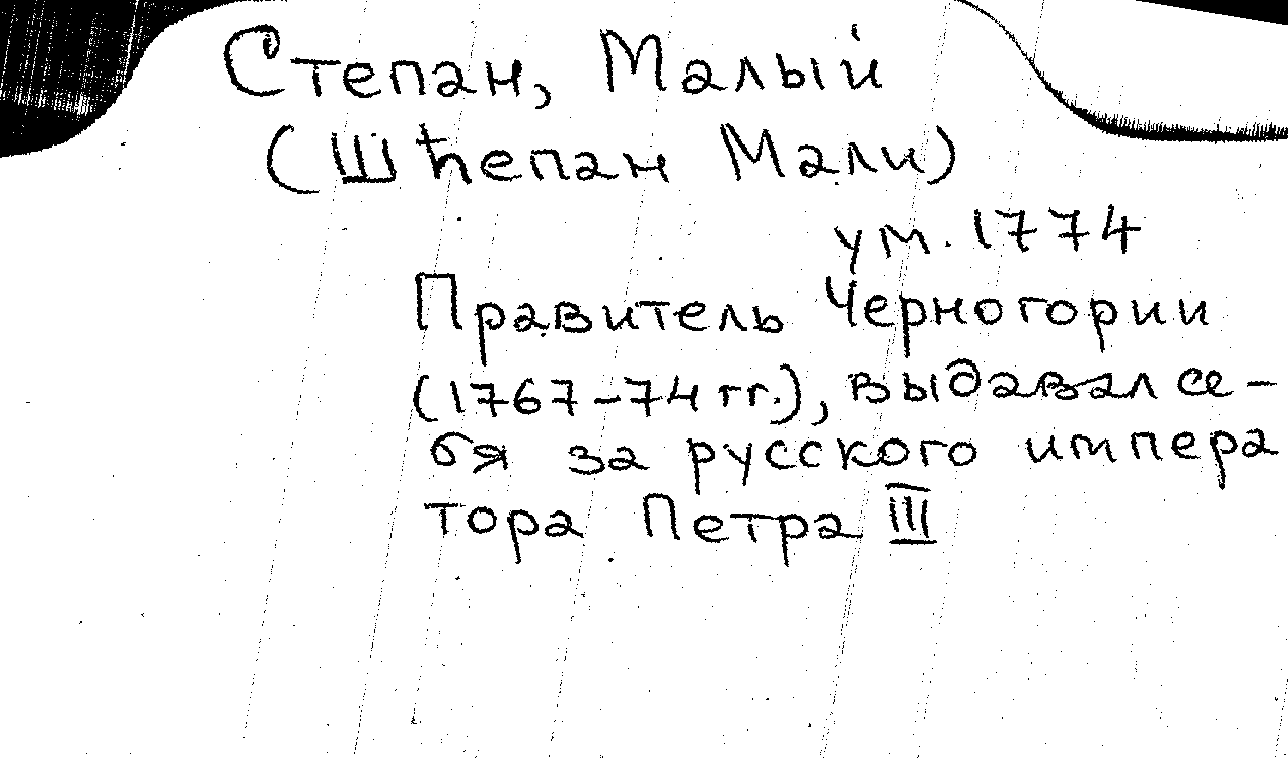 Степан, Малый
(Шћепан Мали)
ум. 1774
Правитель Черногории
(1767-74 гг.), выдавал се-
бя за русского импера
тора Петра III